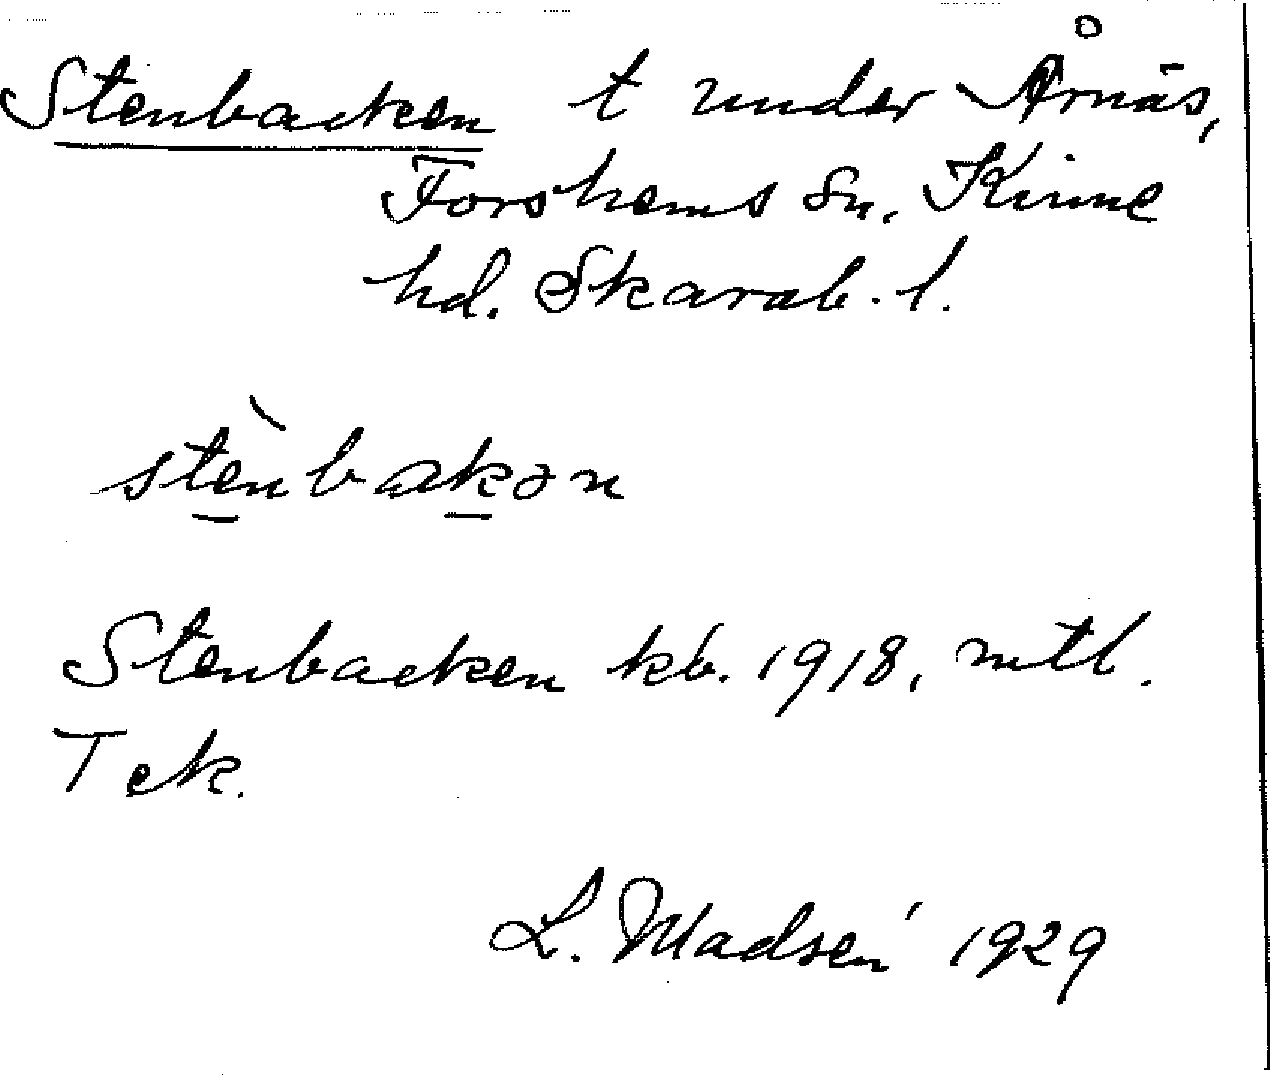 Stenbacken t under Årnäs,
Forshems sn, Kinne
hd. Skarab. l.
stènbakən
Stenbacken kb. 1918, mtl.
T ek.
L. Madsén 1929